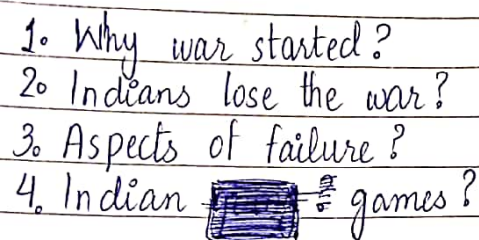 1. Why war started?
2. Indians lose the war?
3. Aspects of failure?
4. Indian games?